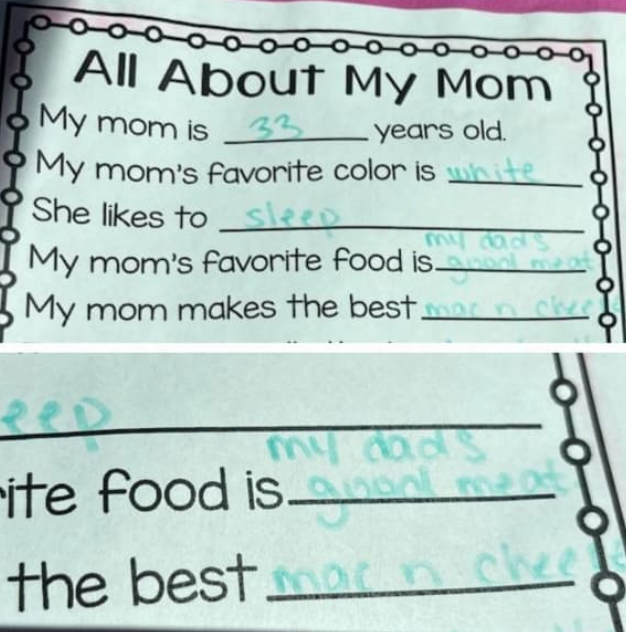 All About My Mom
My mom is 33 years old.
My mom's favorite color is white
She likes to sleep
my dads
My mom's favorite food is meat
My mom makes the best mac n chee
eep
my dads
ite food is meat
the best mac n chee